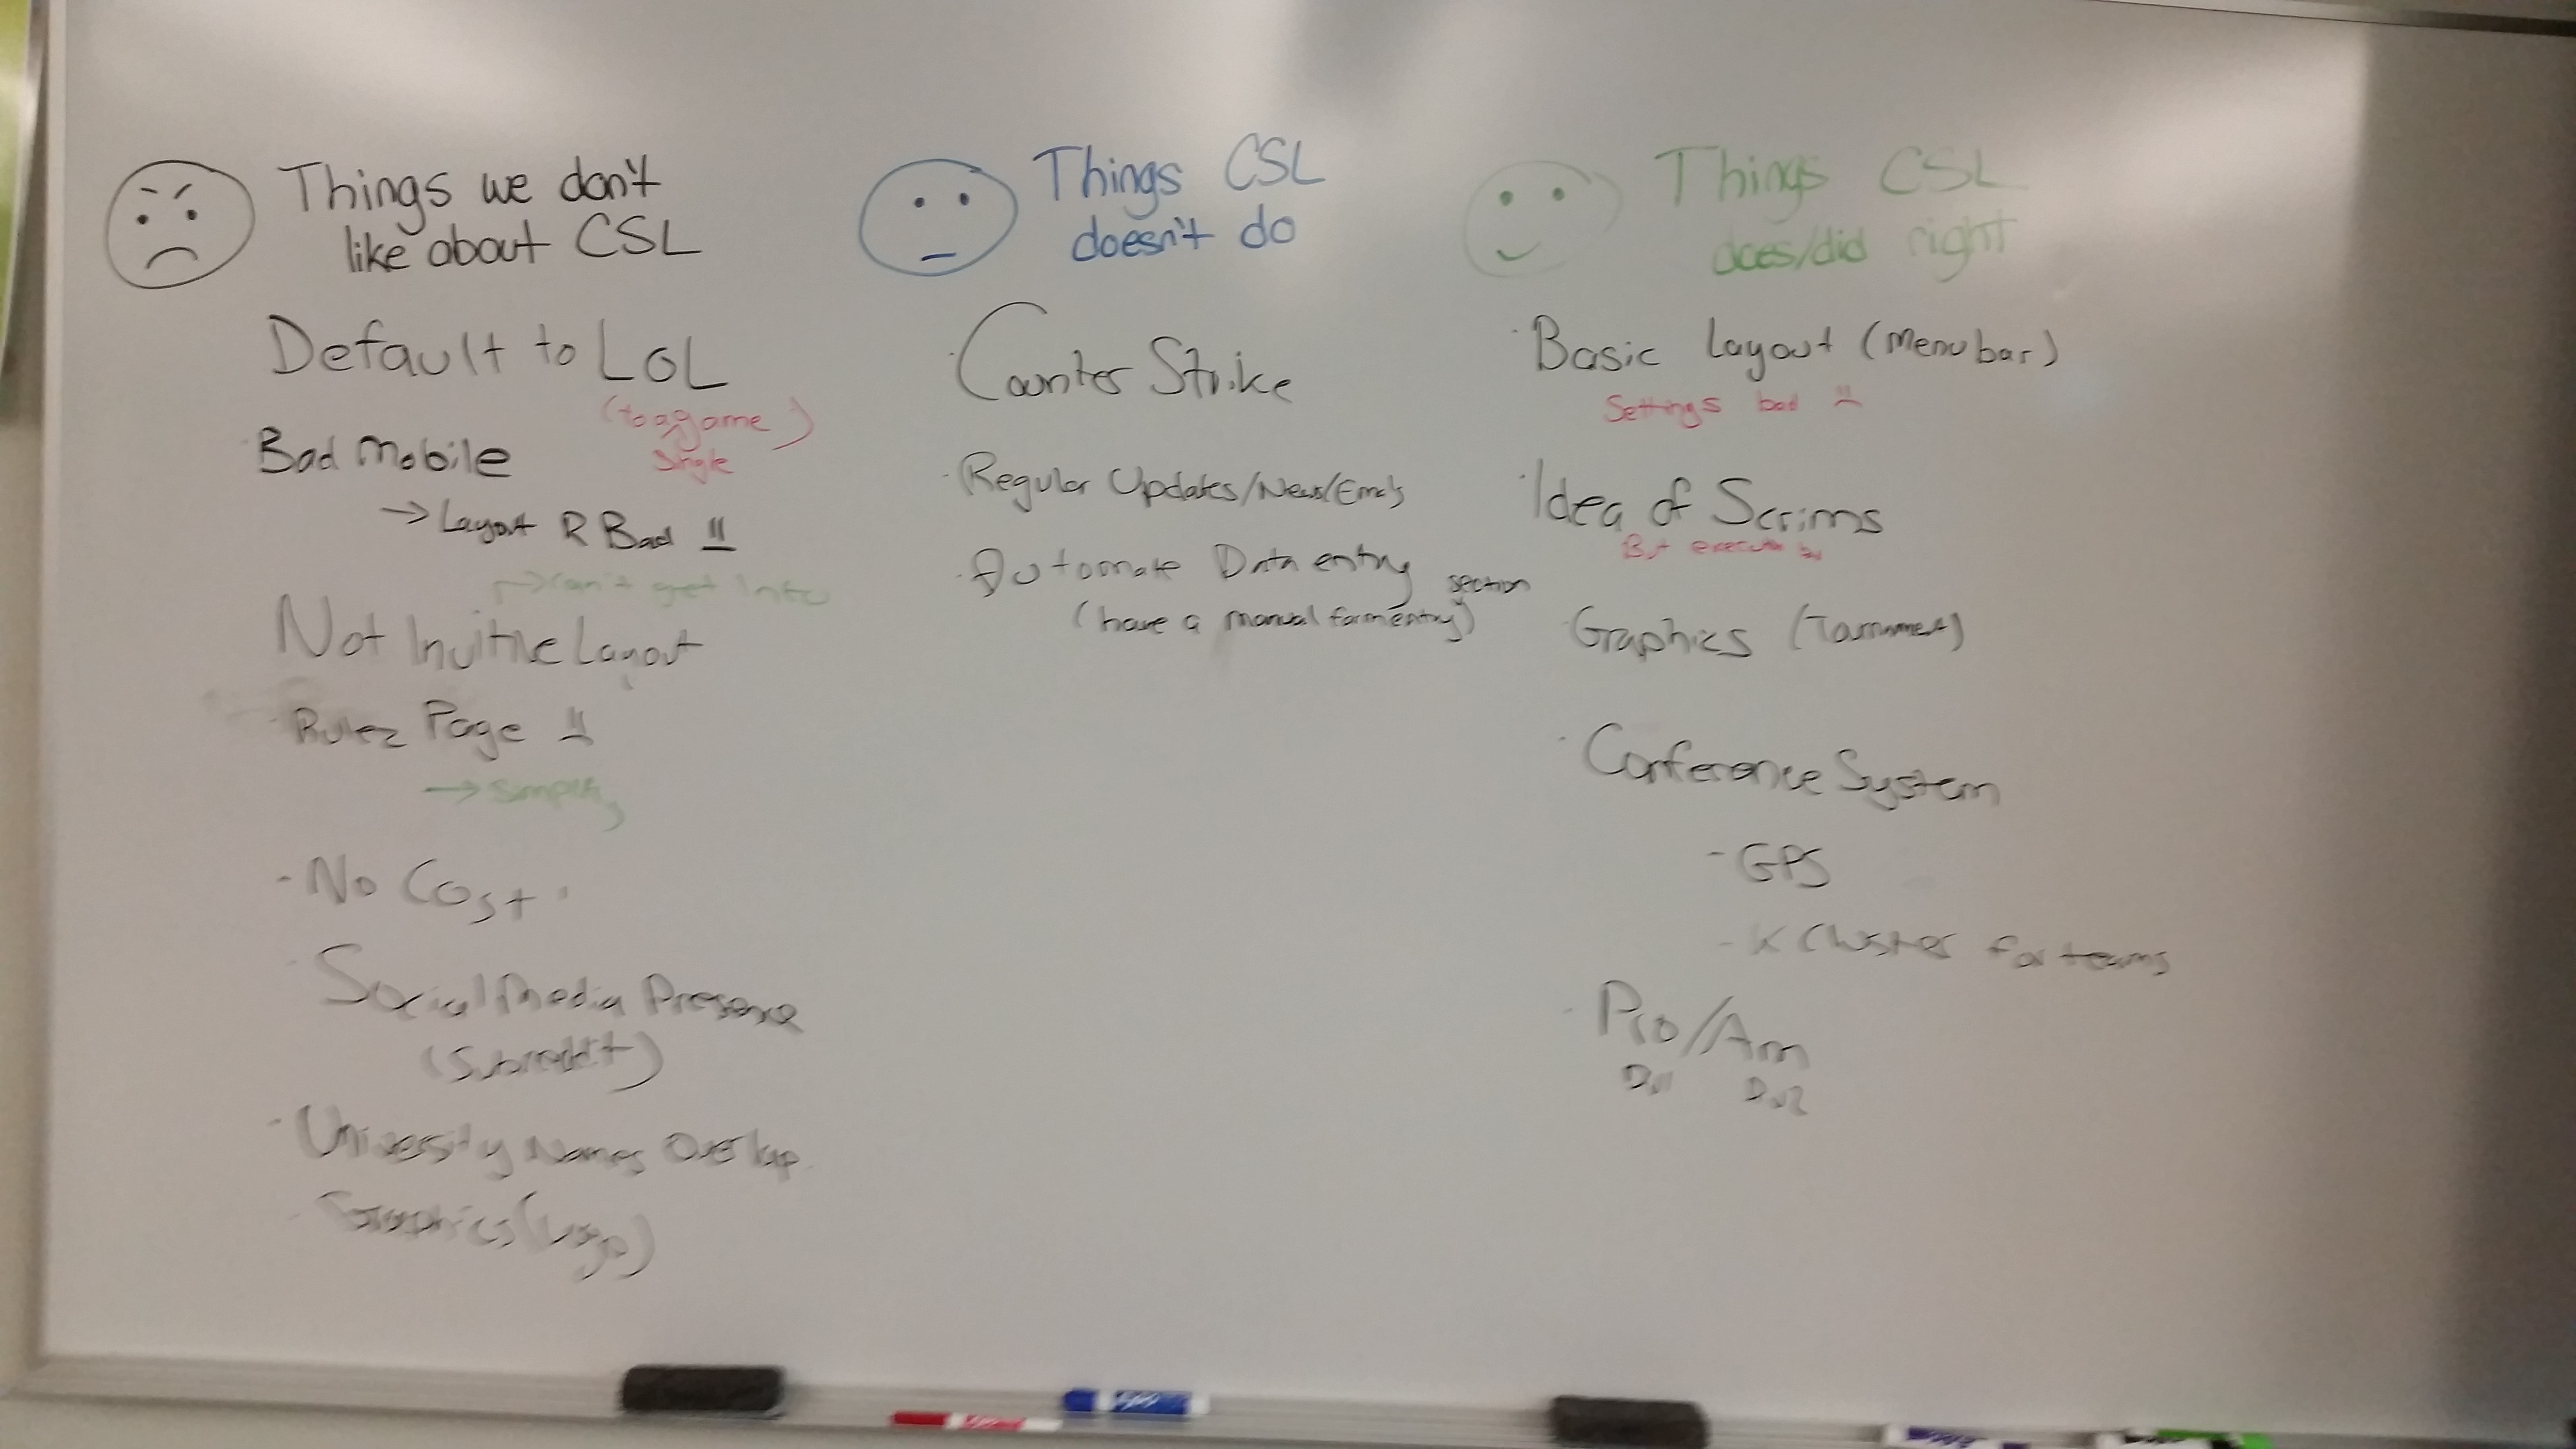 Things we don't
like about CSL
Default to LOL
(to a game)
single
Bad Mobile
→ Layout R Bad !!
→ can't get into
Not Inuitive Layout
Rulez Page !!
→ simplify
- No Cost
· Social Media Presence
(Subreddit)
· University Names Overlap
· Graphics (Logo)
Things CSL
doesn't do
· Counter Strike
· Regular Updates/News/Emails
· Automate Data entry
(have a manual form entry) section
Things CSL
does/did right
· Basic Layout (Menu bar)
Settings bad !!
· Idea of Scrims
But execution
· Graphics (Tournament)
· Conference System
- GPS
- K Cluster for teams
· Pro/Am
Div1 Div2